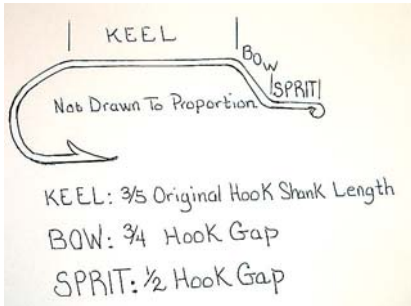 KEEL
BOW
SPRIT
Not Drawn To Proportion
KEEL: 3/5 Original Hook Shank Length
BOW: 3/4 Hook Gap
SPRIT: 1/2 Hook Gap